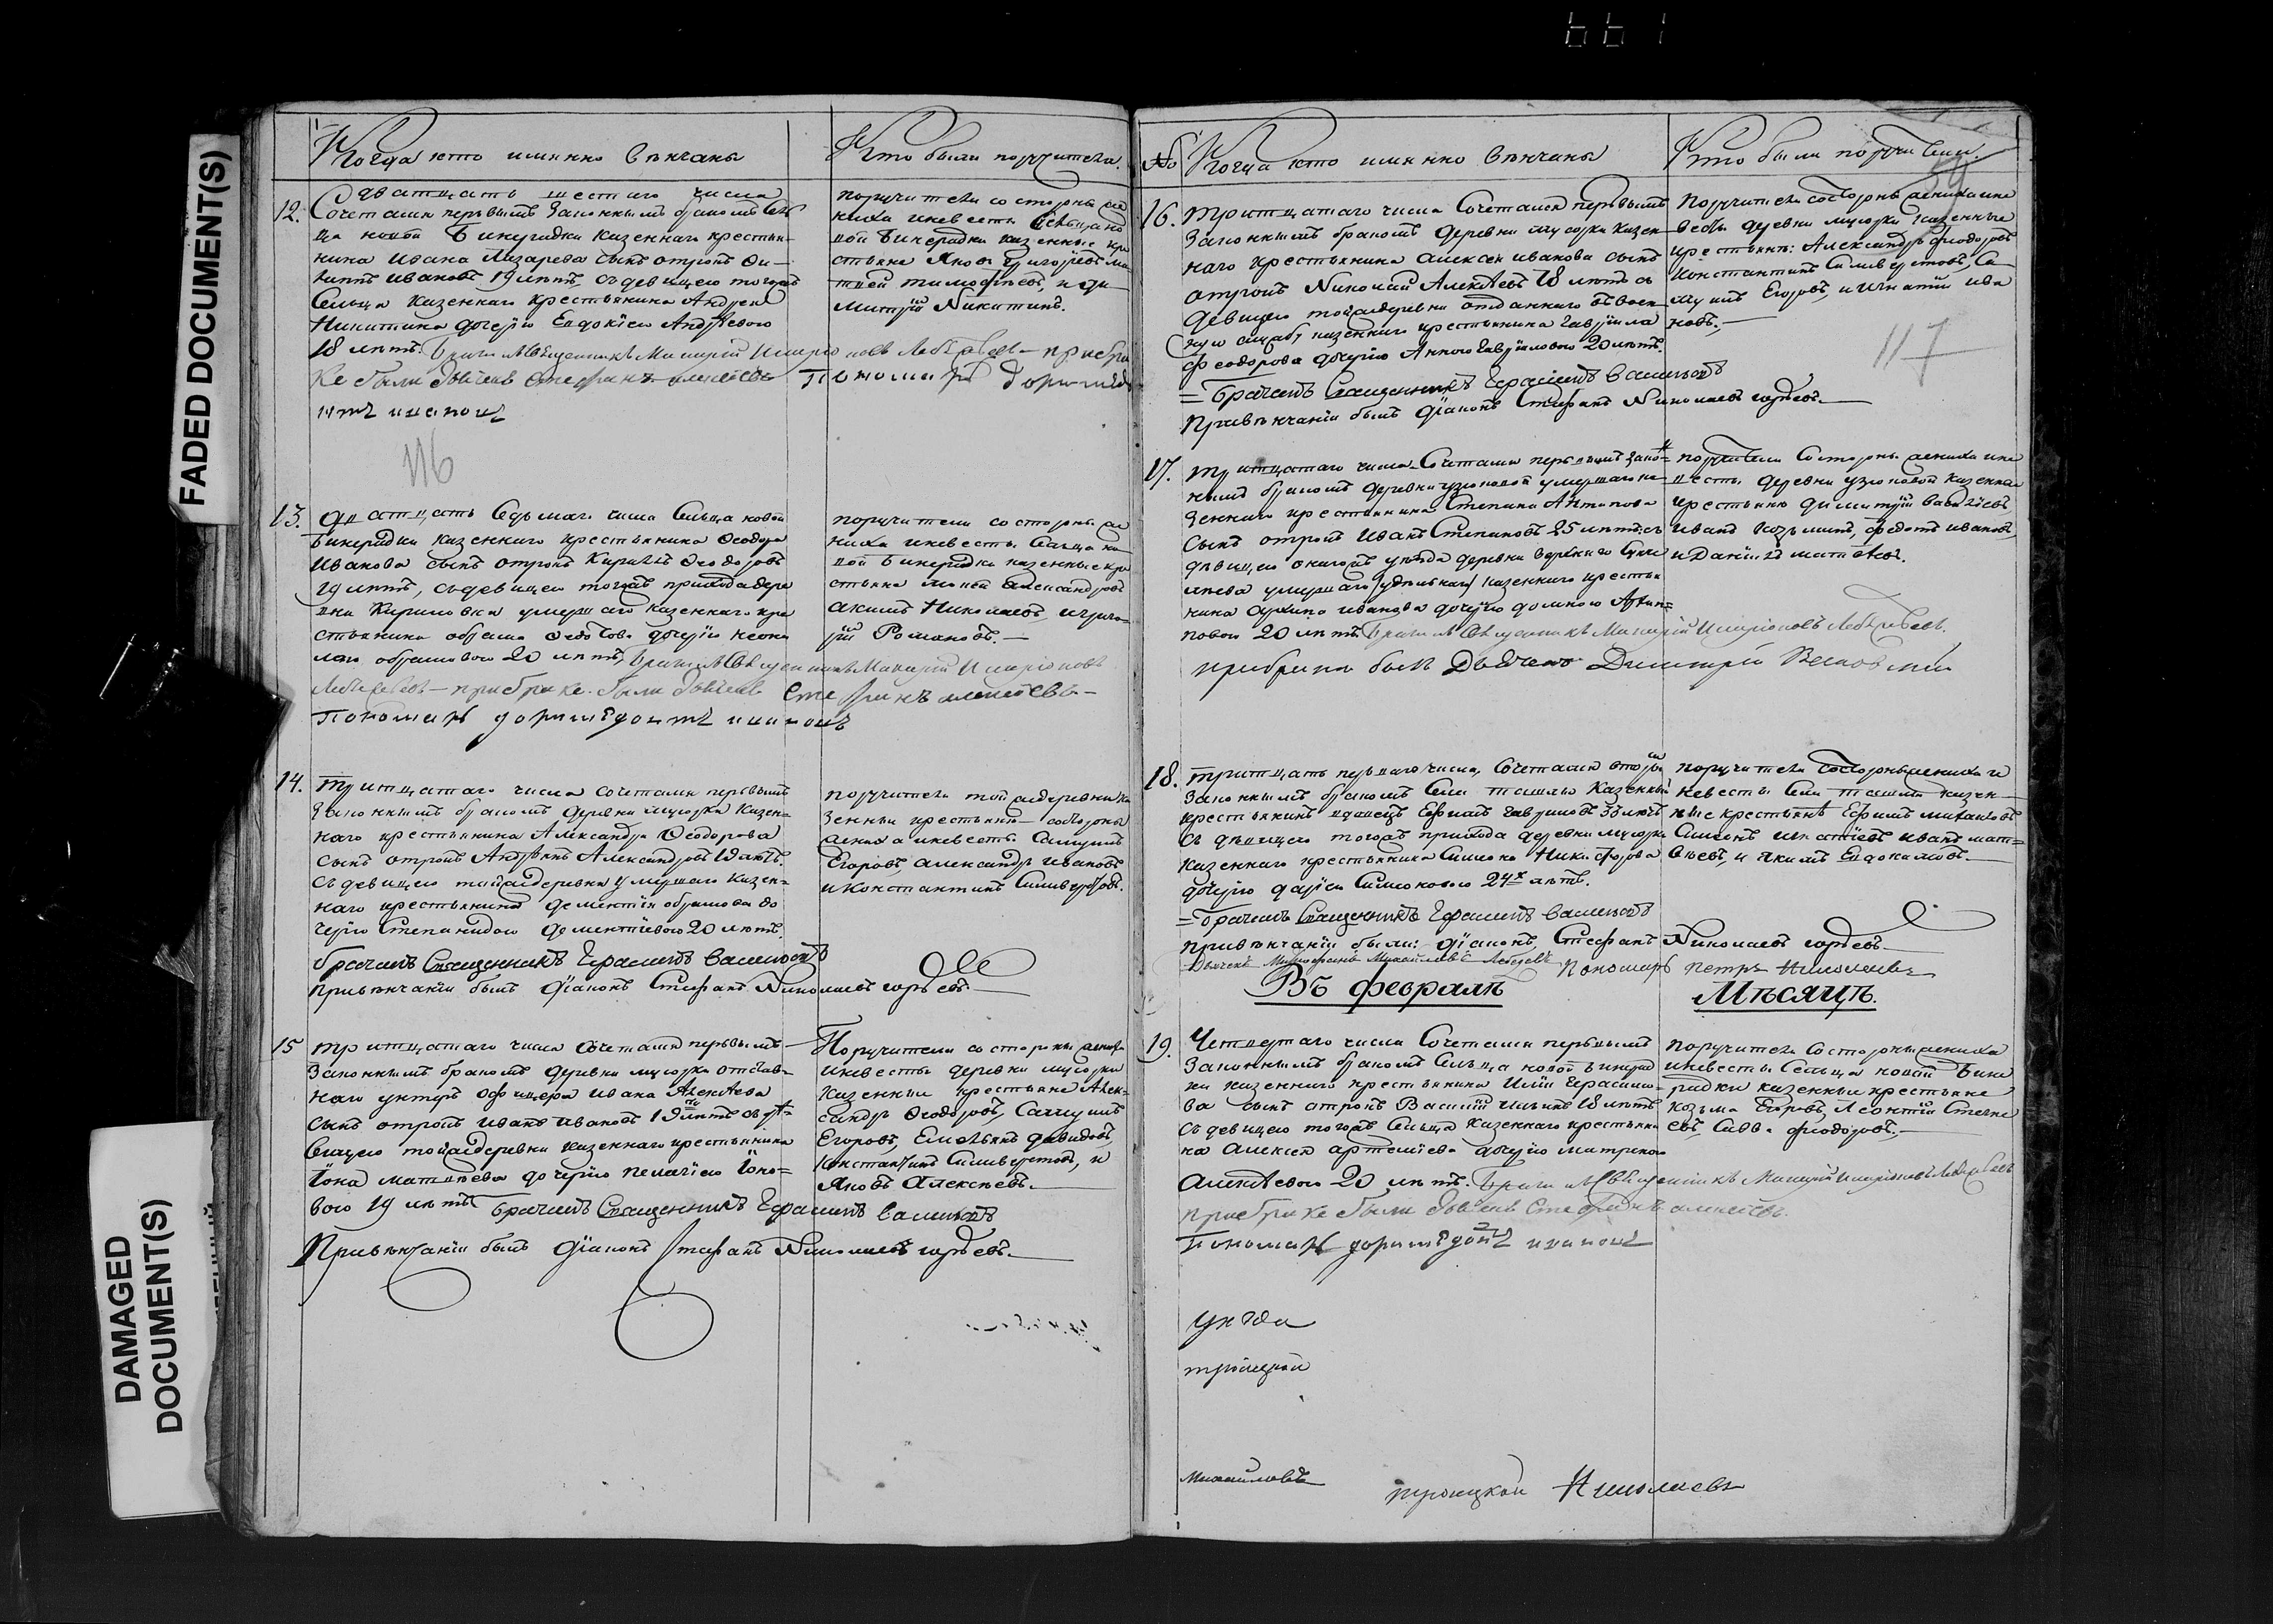 661
FADED DOCUMENT(S)
DAMAGED
DOCUMENT(S)
Когда кто именно вѣнчаны
Кто были поручители
12. Дватцать шестаго числа
Сочетались первымъ законнымъ бракомъ Сель
ца новой Бинерадки казеннаго крестья-
нина Ивана Лазарева сынъ отрокъ
Ивановъ 19 лѣтъ, съ девицею тогожъ
Сельца казеннаго крестьянина Андрея
Никитина дочерію Евдокіею Андрѣевою
18 лѣтъ. Бракъ Священникъ Макарій Иларіоновъ Лебедевъ при бра
ке были дьячекъ Стефанъ Алексѣевъ Пономарь Дормидонтъ
поручители со стороны же
ниха и невесты Сельца но
вой Бинерадки казенные кре
стьяне Яковъ Григорьевъ Ма
твей Тимофѣевъ, и Ди-
митрій Никитинъ.
116
13. Дватцать седьмаго числа Сельца новой
Бинерадки казеннаго крестьянина Ѳеодора
Иванова сынъ отрокъ Кирилъ Ѳеодоровъ
19 лѣтъ, съ девицею тогожъ прихода дере
вни Кириловки умершаго казеннаго кре
стьянина Абрама Ѳедотова дочерію Неони
лою Абрамовою 20 лѣтъ, Бракъ Священникъ Макарій Иларіоновъ
Лебедевъ при браке были дьячекъ Стефанъ Алексѣевъ
Пономарь Дормидонтъ
поручители со стороны же
ниха и невесты Сельца но
вой Бинерадки казенные кре
стьяне Моисей Александровъ
Акимъ Николаевъ, и Григо-
рій Романовъ.
14. Тритцатаго числа сочетались первымъ
Законнымъ бракомъ деревни Мусорки казен-
наго крестьянина Александра Ѳеодорова
сынъ отрокъ Андрѣянъ Александровъ 18 лѣтъ.
съ девицею тойже деревни умершаго казен-
наго крестьянина Дементія Абрамова до
черію Степанидою Дементіевою 20 лѣтъ.
Брачилъ Священникъ Герасимъ Васильевъ
При вѣнчаніи былъ діаконъ Стефанъ Николаевъ Гордѣевъ.
поручители тойже деревни ка
зенныи крестьяне со стороны
жениха и невесты Самуилъ
Егоровъ, Александръ Ивановъ
и Константинъ Сильверстовъ.
15 тритцатаго числа Сочетались первымъ
Законнымъ бракомъ деревни Мусорки отстав-
наго унтеръ офицера Ивана Алексѣева
сынъ отрокъ Иванъ Ивановъ 19ти лѣтъ съ дѣ-
вицею тойже деревни казеннаго крестьянина
Іона Матвѣева дочерію Пелагіею Іоно-
вою 19 лѣтъ Брачилъ Священникъ Герасимъ Васильевъ
При вѣнчаніи былъ діаконъ Стефанъ Николаевъ Гордѣевъ.
Поручители со стороны жениха
и невесты деревни Мусорки
казенныи крестьяне Алек-
сандръ Ѳеодоровъ, Самуилъ
Егоровъ, Емельянъ Давидовъ,
Константинъ Сильверстовъ, и
Яковъ Алексѣевъ.
№ Когда кто именно вѣнчаны
Кто были поручители.
59
16. тритцатаго числа Сочетались первымъ
Законнымъ бракомъ деревни Мусорки казен-
наго крестьянина Алексея Иванова сынъ
отрокъ Николай Алексѣевъ 18 лѣтъ съ
девицею тойже деревни отданнаго въ воен-
ную службу казеннаго крестьянина Гавріила
Феодорова дочерію Анною Гавріиловою 20 лѣтъ.
Брачилъ Священникъ Герасимъ Васильевъ
При вѣнчаніи былъ діаконъ Стефанъ Николаевъ Гордѣевъ.
Поручители со стороны жениха и не
весты деревни Мусорки казенные
крестьяне: Александръ Феодоровъ
Константинъ Сильверстовъ, Са
муилъ Егоровъ, и Игнатій Ива
новъ.
117
17. Тритцатаго числа Сочетались первымъ закон-
нымъ бракомъ деревни Узюковой умершаго ка
зеннаго крестьянина Степана Антипова
сынъ отрокъ Иванъ Степановъ 25 лѣтъ съ
дѣвицею уѣзда деревни верхняго
умершаго удельнаго казеннаго крестья
нина Архипа Иванова дочерію Домною Архи-
повою 20 лѣтъ. Бракъ Священникъ Макарій Иларіоновъ Лебедевъ.
при браке былъ Дьячекъ Димитрій
поручители со стороны жениха и не
весты деревни Узюковой казенны
крестьяне Димитрій
Иванъ Козьминъ, Федотъ Ивановъ,
и Даніилъ Матвѣевъ.
18. Тритцать перваго числа, Сочетались вторымъ
Законнымъ бракомъ Села Ташелы казенный
крестьянинъ вдовецъ Ефимъ Гавриловъ 33 лѣтъ
Съ дѣвицею тогожъ прихода деревни Мусорки
казеннаго крестьянина Симеона Никифорова
дочерію Даріею Симеоновою 24х лѣтъ.
Брачилъ Священникъ Герасимъ Васильевъ
При вѣнчаніи были: діаконъ, Стефанъ Николаевъ Гордѣевъ
Дьячекъ Митрофанъ Михайловъ Лебедевъ Пономарь Петръ Николаевъ
поручители со стороны жениха и
невесты Села Ташелы казен-
ные крестьяне Ефимъ Михайловъ
Симеонъ Игнатіевъ Иванъ Мат-
вѣевъ, и Якимъ Евдокимовъ.
Въ февралѣ Мѣсяцѣ.
19. Четвертаго числа Сочетались первымъ
Законнымъ бракомъ Сельца новой Бинерад
ки казеннаго крестьянина Ильи Герасимо-
ва сынъ отрокъ Василій Ильинъ 18 лѣтъ
Съ девицею тогожъ Сельца казеннаго крестьяни
на Алексея Артемьева дочерію Матреною
Алексѣевою 20 лѣтъ. Бракъ Священникъ Макарій Иларіоновъ Лебедевъ
при браке были дьячекъ Стефанъ Алексѣевъ.
Пономарь Дормидонтъ
поручители со стороны жениха
и невесты Сельца новой Бине
радки казенныи крестьяне
Козьма Егоровъ, Леонтій Степа
евъ, Савва Феодоровъ.
уѣзда
троицкой
Михайловъ
троицкой Николаевъ